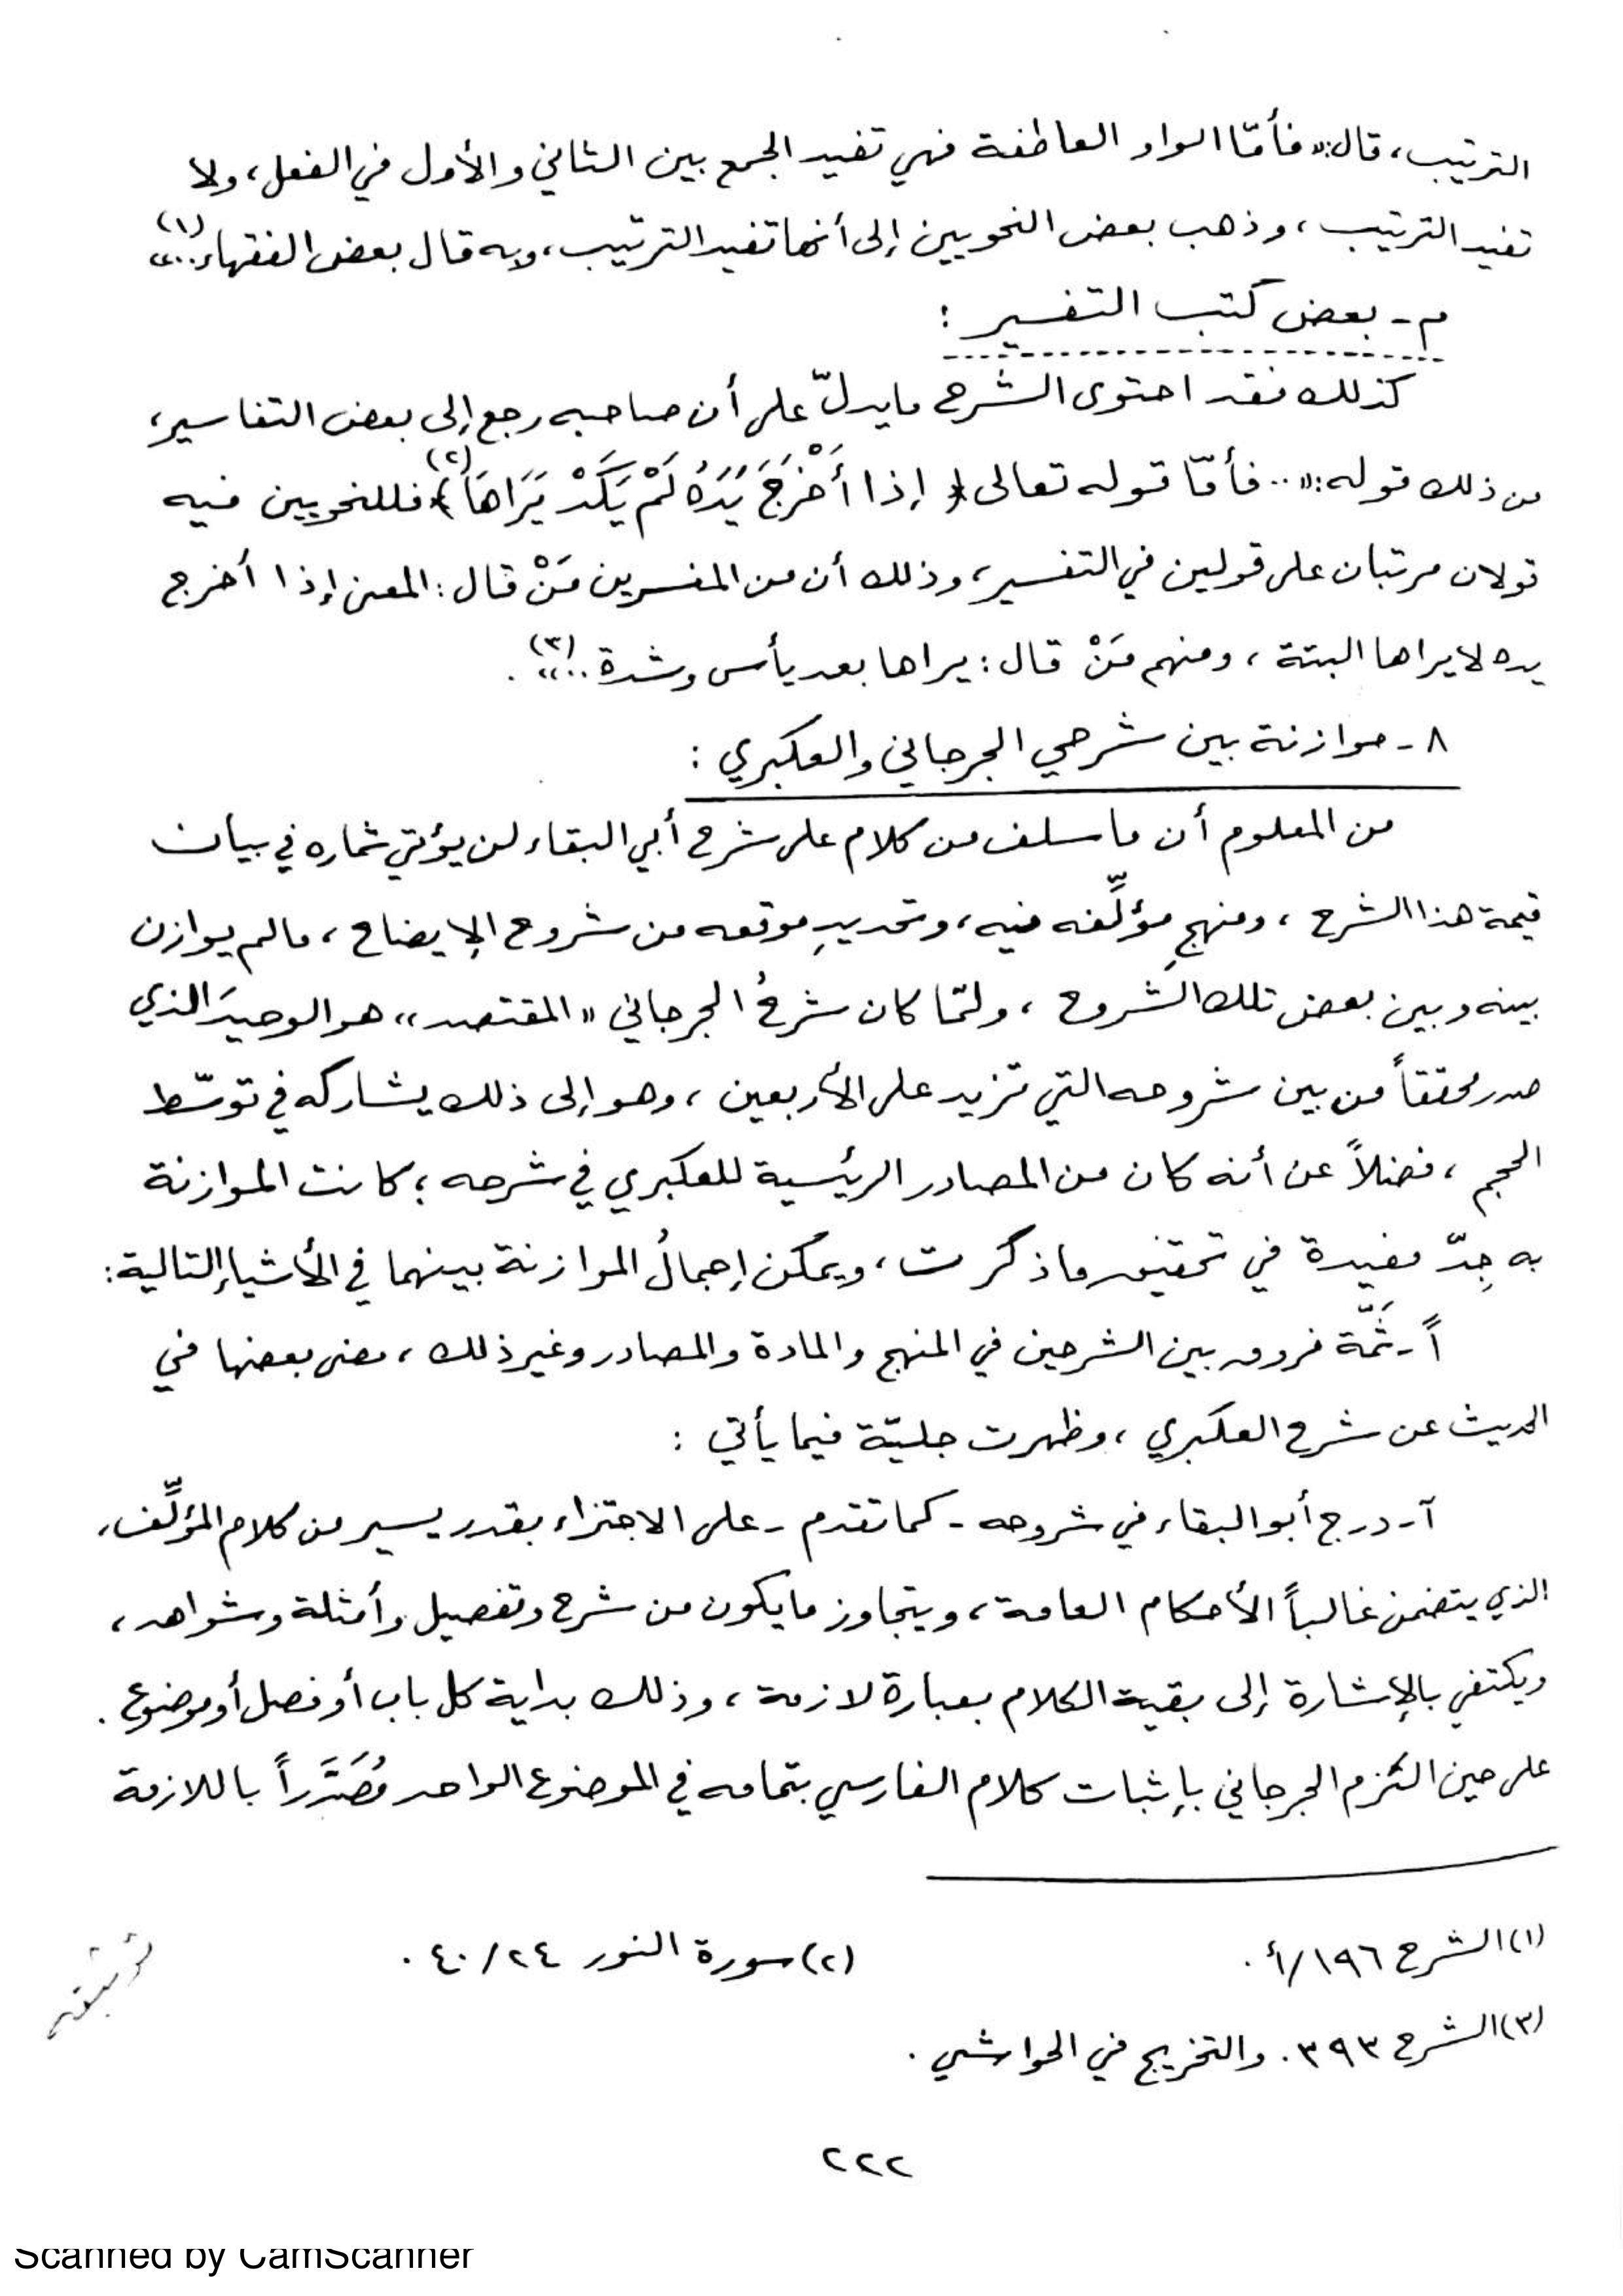 الترتيب، قال: «فأمّا الواو العاطفة فهي تفيد الجمع بين الثاني والأول في الفعل، ولا
تفيد الترتيب، وذهب بعض النحويين إلى أنها تفيد الترتيب، وبه قال بعض الفقهاء..»(١)
م- بعض كتب التفسير :
كذلك فقد احتوى الشرح مايدلّ على أن صاحبه رجع إلى بعض التفاسير،
من ذلك قوله: «.. فأمّا قوله تعالى ﴿ إذا أَخْرَجَ يَدَهُ لَمْ يَكَدْ يَرَاهَا ﴾(٢) فللنحويين فيه
قولان مرتبان على قولين في التفسير، وذلك أن من المفسرين مَنْ قال: المعنى إذا أخرج
يده لا يراها البتة، ومنهم مَنْ قال: يراها بعد يأس وشدة ..»(٣).
٨- موازنة بين شرحي الجرجاني والعكبري :
من المعلوم أن ما سلف من كلام على شرح أبي البقاء لن يؤتي ثماره في بيان
قيمة هذا الشرح، ومنهجِ مؤلِّفه فيه، وتحديدِ موقعه من شروح الإيضاح، مالم يوازن
بينه وبين بعض تلك الشروح، ولمّا كان شرحُ الجرجاني «المقتصد» هو الوحيدَ الذي
صدر محققاً من بين شروحه التي تزيد على الأربعين، وهو إلى ذلك يشاركه في توسّط
الحجم، فضلاً عن أنه كان من المصادر الرئيسية للعكبري في شرحه؛ كانت الموازنة
به جِدّ مفيدة في تحقيق ماذكرت، ويمكن إجمالُ الموازنة بينهما في الأشياء التالية:
أً- ثَمَّة فروق بين الشرحين في المنهج والمادة والمصادر وغير ذلك، مضى بعضها في
الحديث عن شرح العكبري، وظهرت جليّة فيما يأتي :
آ- درج أبو البقاء في شروحه - كما تقدم - على الاجتزاء بقدر يسير من كلام المؤلِّف،
الذي يتضمن غالباً الأحكام العامة، ويتجاوز ما يكون من شرح وتفصيل وأمثلة وشواهد،
ويكتفي بالإشارة إلى بقية الكلام بعبارة لازمة، وذلك بداية كل باب أو فصل أو موضوع.
على حين التزم الجرجاني بإثبات كلام الفارسي بتمامه في الموضوع الواحد مُصَدَّراً باللازمة
(١) الشرح ١٩٦/أ.
(٢) سورة النور ٢٤/٤٠.
(٣) الشرح ٣٩٣. والتخريج في الحواشي.
٢٢٢
Scanned by CamScanner